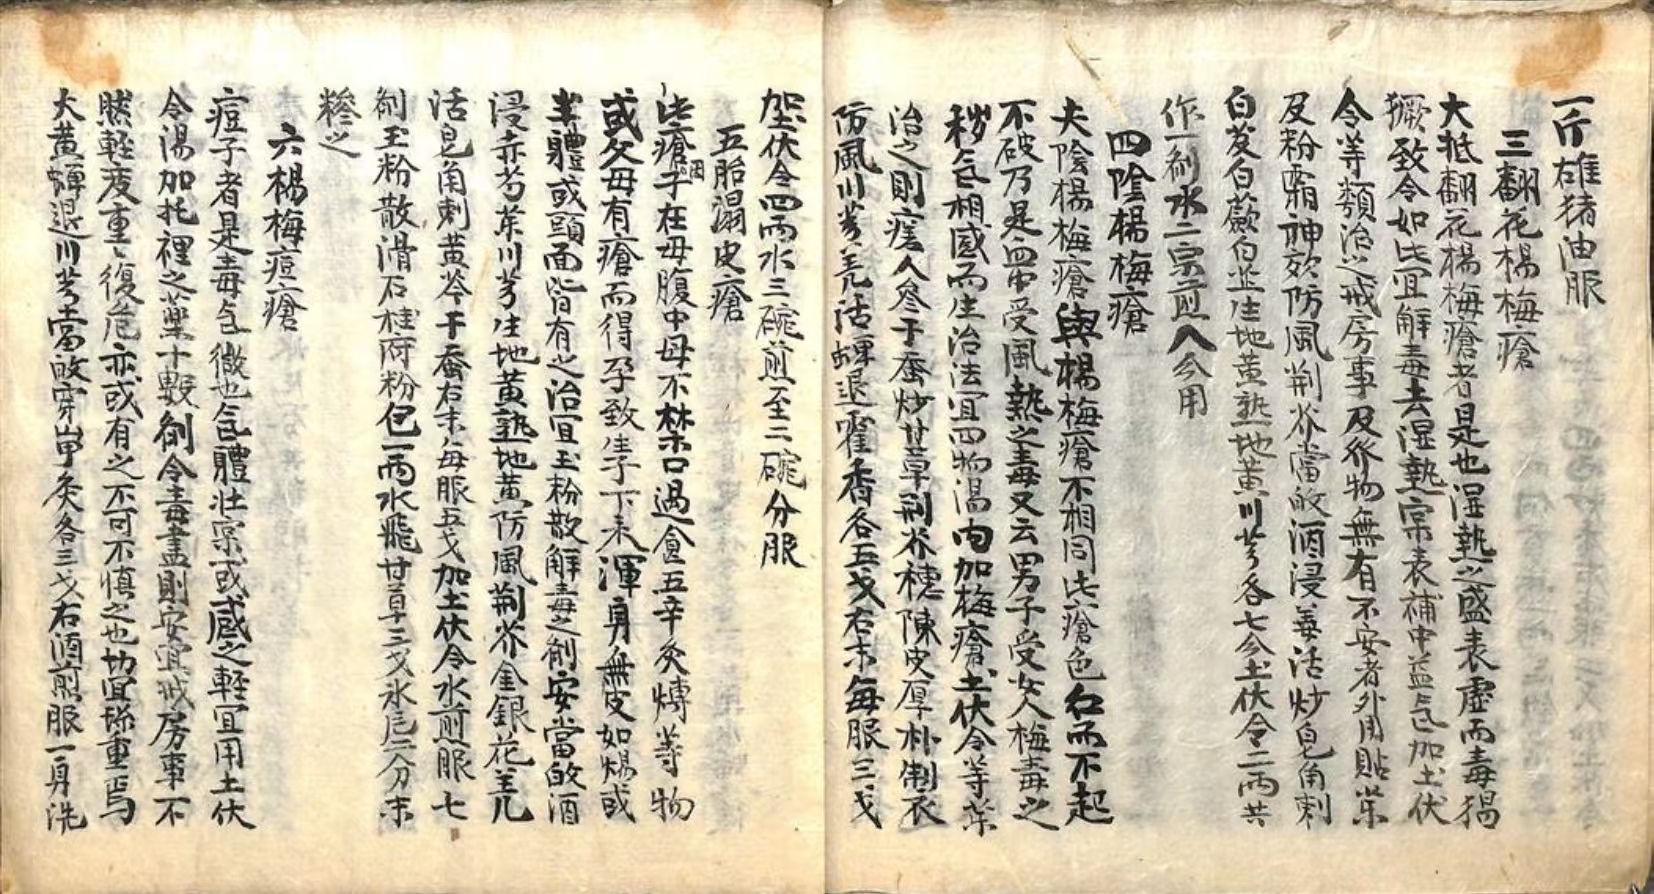 一斤雄猪油服
三翻花楊梅瘡
大抵翻花楊梅瘡者是也湿熱之盛表虛而毒猖
獗致令如此宜解毒去湿熱宗表補中益气加土伏
令等類治之戒房事及發物無有不安者外用貼藥
及粉霜神效防風荆芥當皈酒浸羌活炒皂角刺
白芨白蘞白芷生地黄熟地黄川芎各七分土伏令二兩共
作一剂水二宗煎入分用
四陰楊梅瘡
夫陰楊梅瘡與楊梅瘡不相同此瘡色红而不起
不破乃是血中受風熱之毒又云男子受女人梅毒之
秽气相感而生治法宜四物湯内加梅瘡土伏令等藥
治之則瘥人參干蚕炒甘草荆芥穗陳皮厚朴制衣
防風川芎羌活蟬退霍香各五戋右末每服三戋
加土伏令四兩水三碗煎至二碗分服
五胎溻皮瘡
此瘡因子在母腹中母不禁口過食五辛炙煿等物
或父母有瘡而得孕致生子下来渾身無皮如煬或
半體或頭面皆有之治宜玉粉散解毒之剂安當皈酒
浸赤芍茱川芎生地黄熟地黄防風荆芥金銀花羌
活皂角刺黄芩干蚕右末每服五戋加土伏令水煎服七
剂玉粉散滑石桂府粉包一兩水飛甘草三戋氷片二分末
糝之
六楊梅痘瘡
痘子者是毒气微也气體壮宗或感之輕宜用土伏
令湯加托裡之藥十數剂令毒盡則安宜戒房事不
然輕变重重復危亦或有之不可不慎之也切宜珎重焉
大黄蟬退川芎當皈穿山甲灸各三戋右酒煎服一身洗